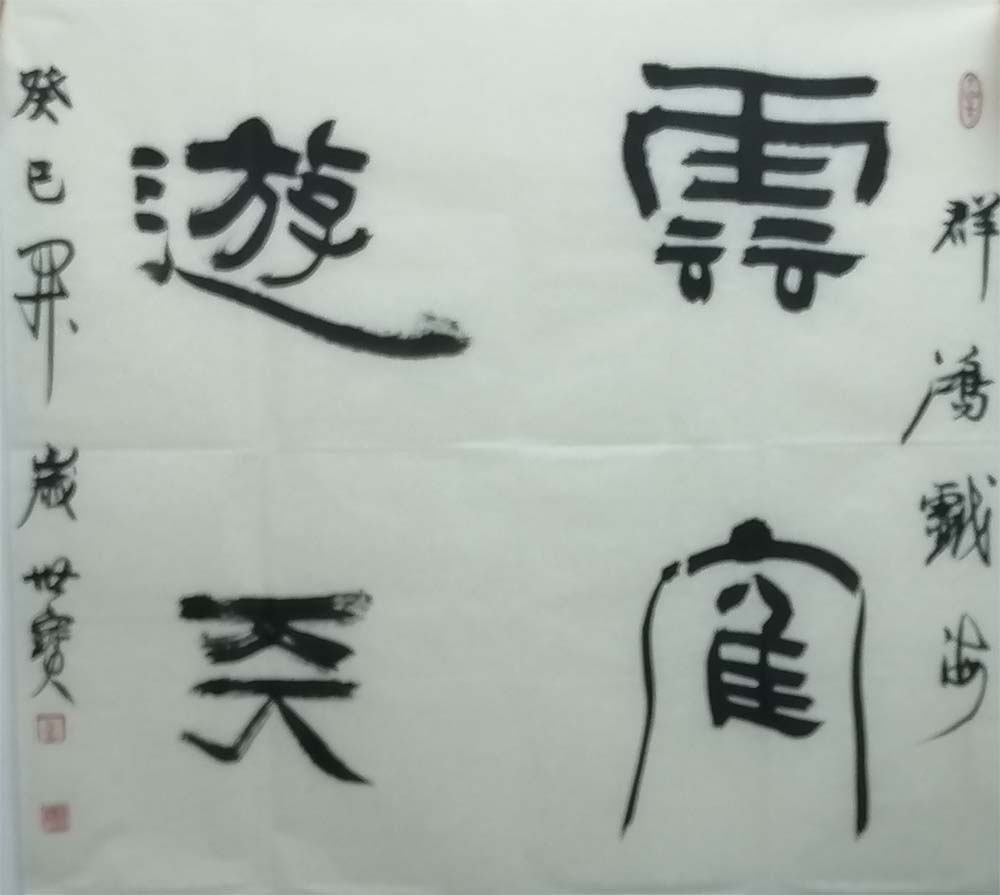 群鴻戲海
雲寉
遊天
癸巳 歲世寶